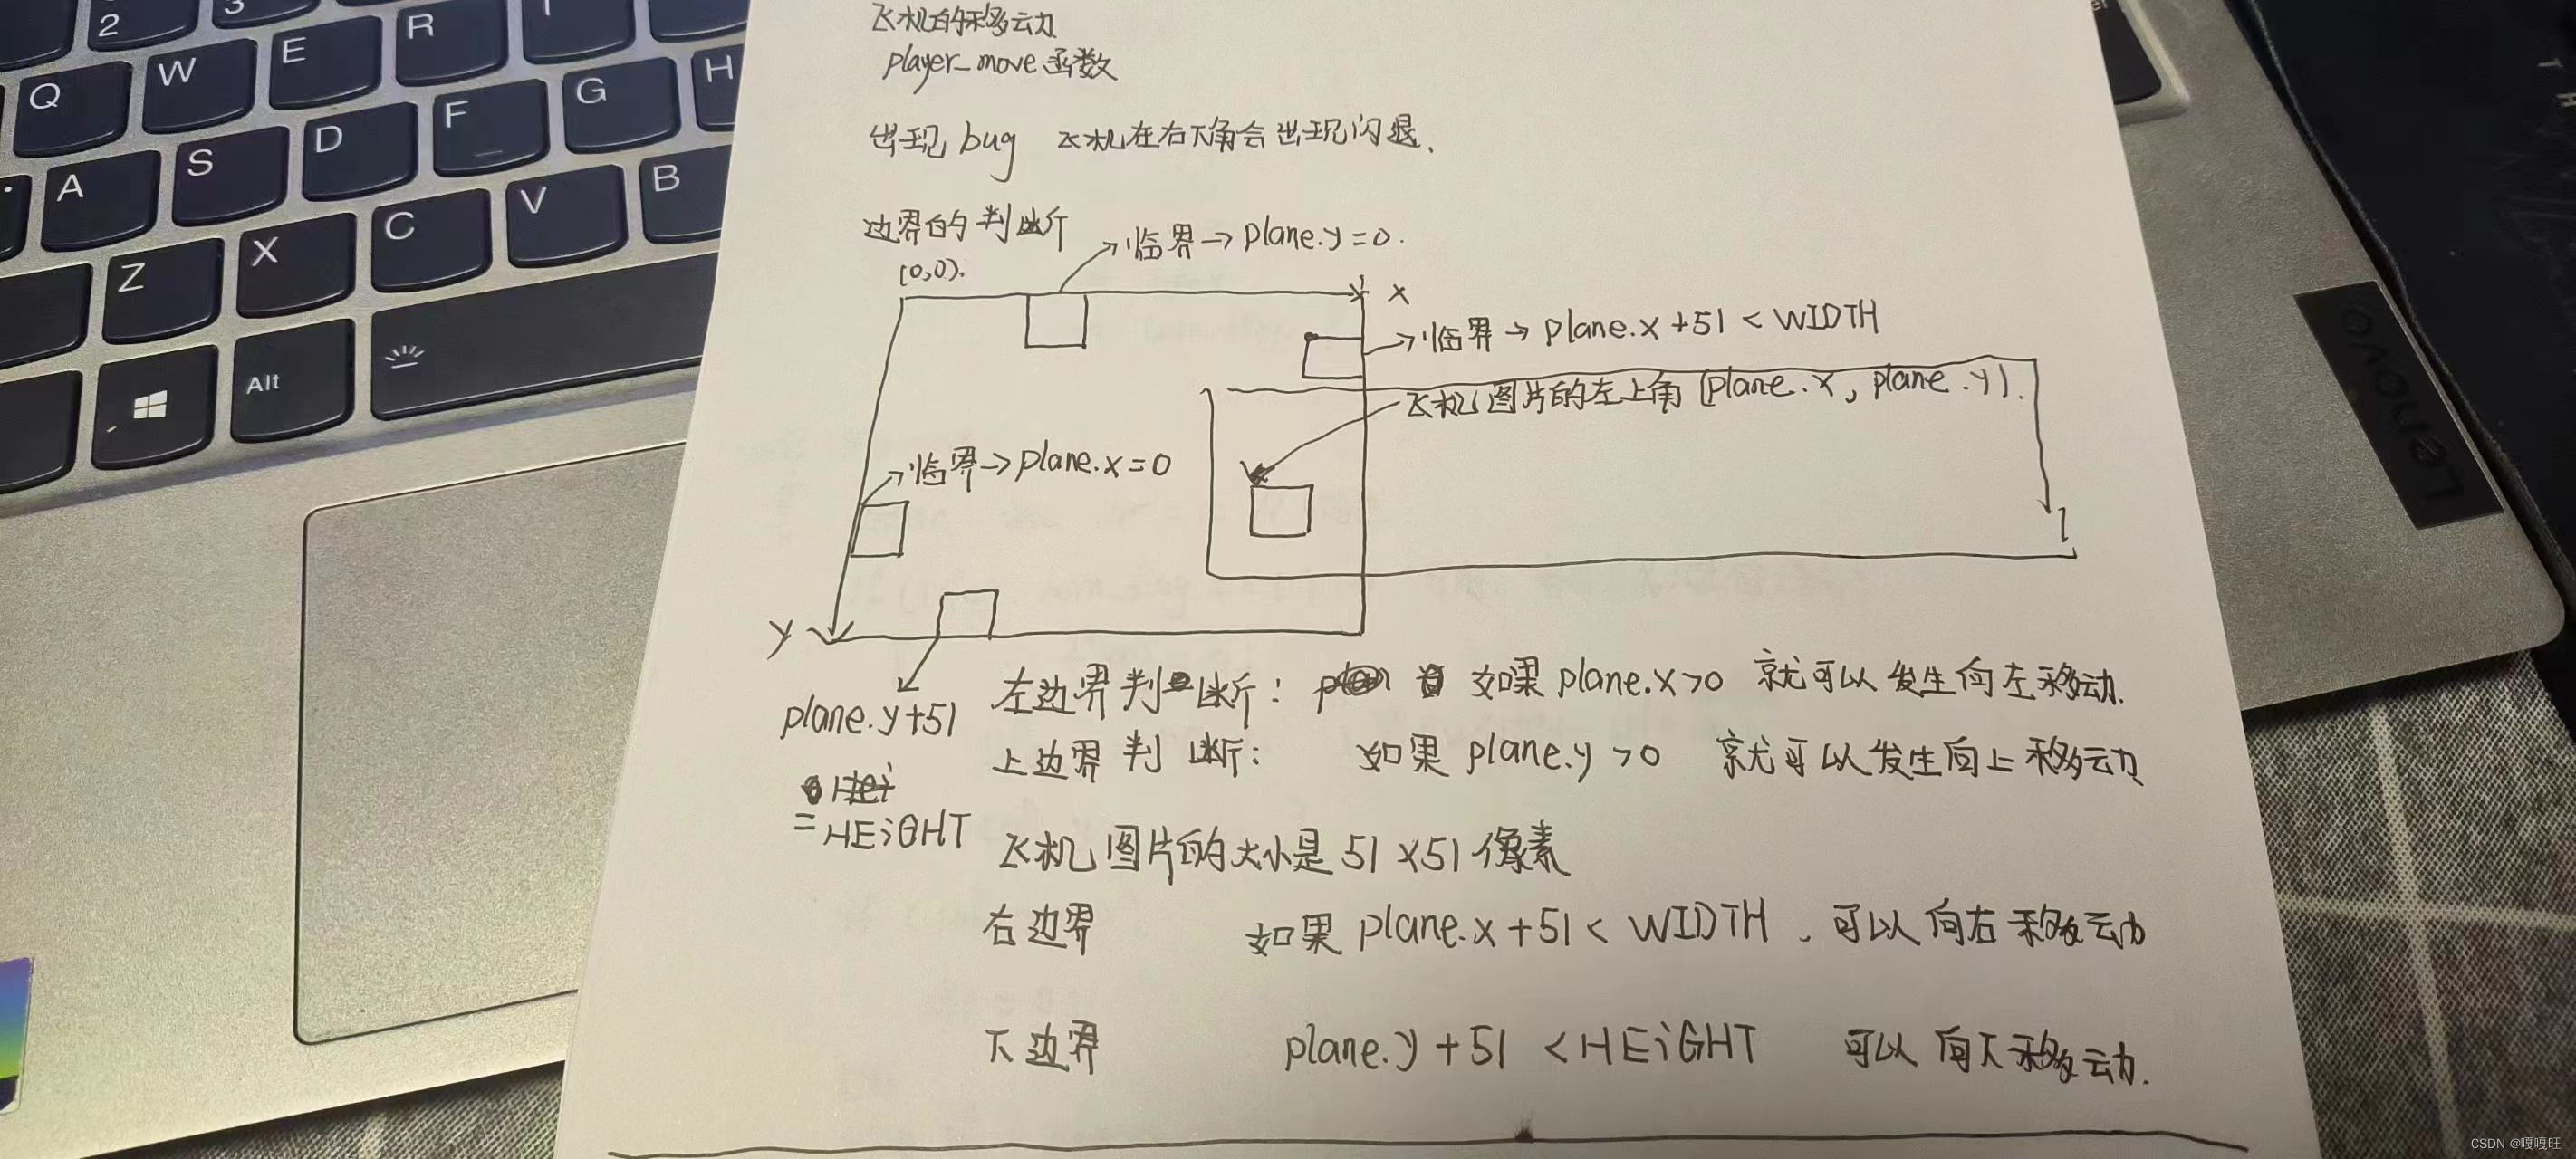 2
3
Q
W
E
R
T
A
S
D
F
G
H
Z
X
C
V
B
Alt
飞机的移动
player_move 函数
出现 bug 飞机在右下角会出现闪退.
边界的判断
临界→plane.y=0.
(0,0).
x
临界→plane.x+51<WIDTH
飞机图片的左上角(plane.x, plane.y).
临界→plane.x=0
y
plane.y+51
=HEiGHT
左边界判断: 如果plane.x>0 就可以发生向左移动.
上边界判断: 如果plane.y>0 就可以发生向上移动
飞机图片的大小是51×51像素
右边界 如果plane.x+51<WIDTH.可以向右移动
下边界 plane.y+51<HEiGHT 可以向下移动.
Lenovo
CSDN @嘎嘎旺